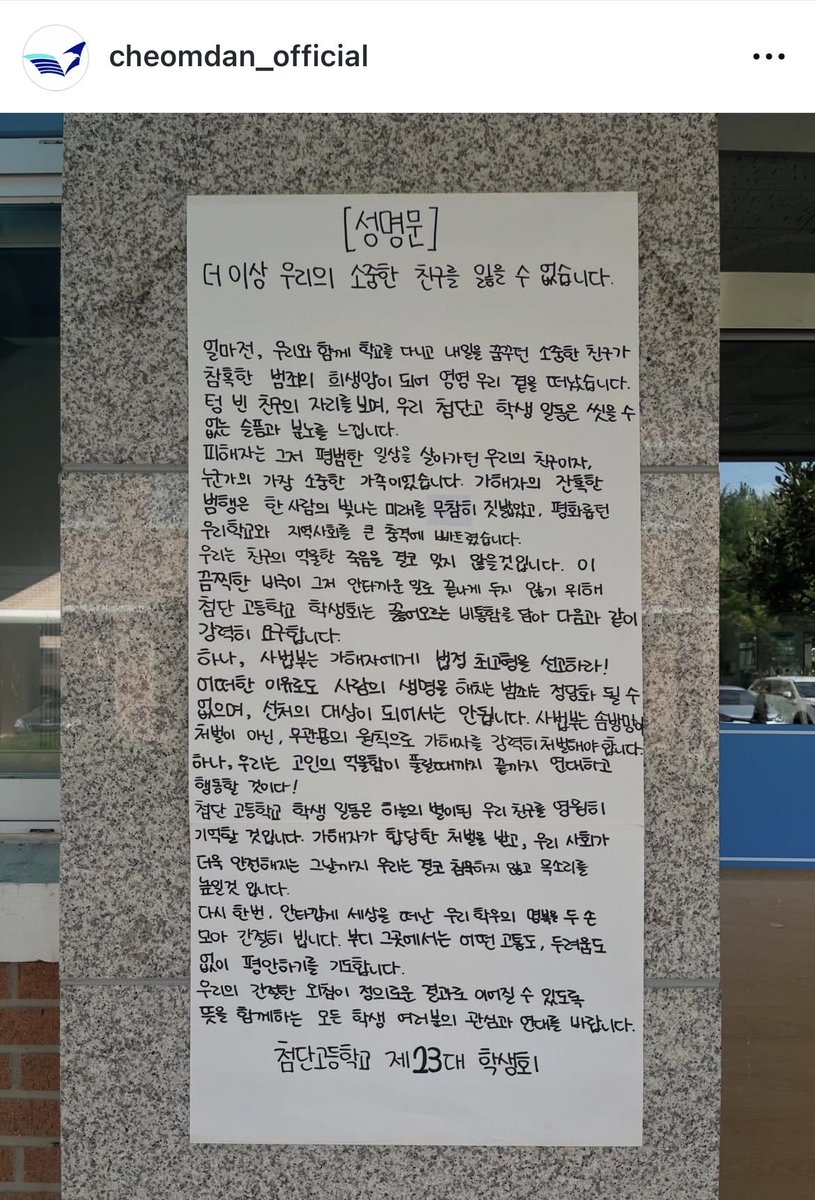 cheomdan_official
[성명문]
더 이상 우리의 소중한 친구를 잃을 수 없습니다.
얼마전, 우리와 함께 학교를 다니고 내일을 꿈꾸던 소중한 친구가
참혹한 범죄의 희생양이 되어 영영 우리 곁을 떠났습니다.
텅 빈 친구의 자리를 보며, 우리 첨단고 학생 일동은 씻을 수
없는 슬픔과 분노를 느낍니다.
피해자는 그저 평범한 일상을 살아가던 우리의 친구이자,
누군가의 가장 소중한 가족이었습니다. 가해자의 잔혹한
범행은 한 사람의 빛나는 미래를 무참히 짓밟았고, 평화롭던
우리학교와 지역사회를 큰 충격에 빠트렸습니다.
우리는 친구의 억울한 죽음을 결코 잊지 않을것입니다. 이
끔찍한 비극이 그저 안타까운 일로 끝나게 두지 않기 위해
첨단 고등학교 학생회는 끓어오르는 비통함을 담아 다음과 같이
강력히 요구합니다.
하나, 사법부는 가해자에게 법정 최고형을 선고하라!
어떠한 이유로도 사람의 생명을 해치는 범죄는 정당화 될 수
없으며, 선처의 대상이 되어서는 안됩니다. 사법부는 솜방망이
처벌이 아닌, 무관용의 원칙으로 가해자를 강력히 처벌해야 합니다.
하나, 우리는 고인의 억울함이 풀릴때까지 끝까지 연대하고
행동할 것이다!
첨단 고등학교 학생 일동은 하늘의 별이된 우리 친구를 영원히
기억할 것입니다. 가해자가 합당한 처벌을 받고, 우리 사회가
더욱 안전해지는 그날까지 우리는 결코 침묵하지 않고 목소리를
높일것 입니다.
다시 한번, 안타깝게 세상을 떠난 우리 학우의 명복을 두 손
모아 간절히 빕니다. 부디 그곳에서는 어떤 고통도, 두려움도
없이 평안하기를 기도합니다.
우리의 간절한 외침이 정의로운 결과로 이어질 수 있도록
뜻을 함께하는 모든 학생 여러분의 관심과 연대를 바랍니다.
첨단고등학교 제23대 학생회